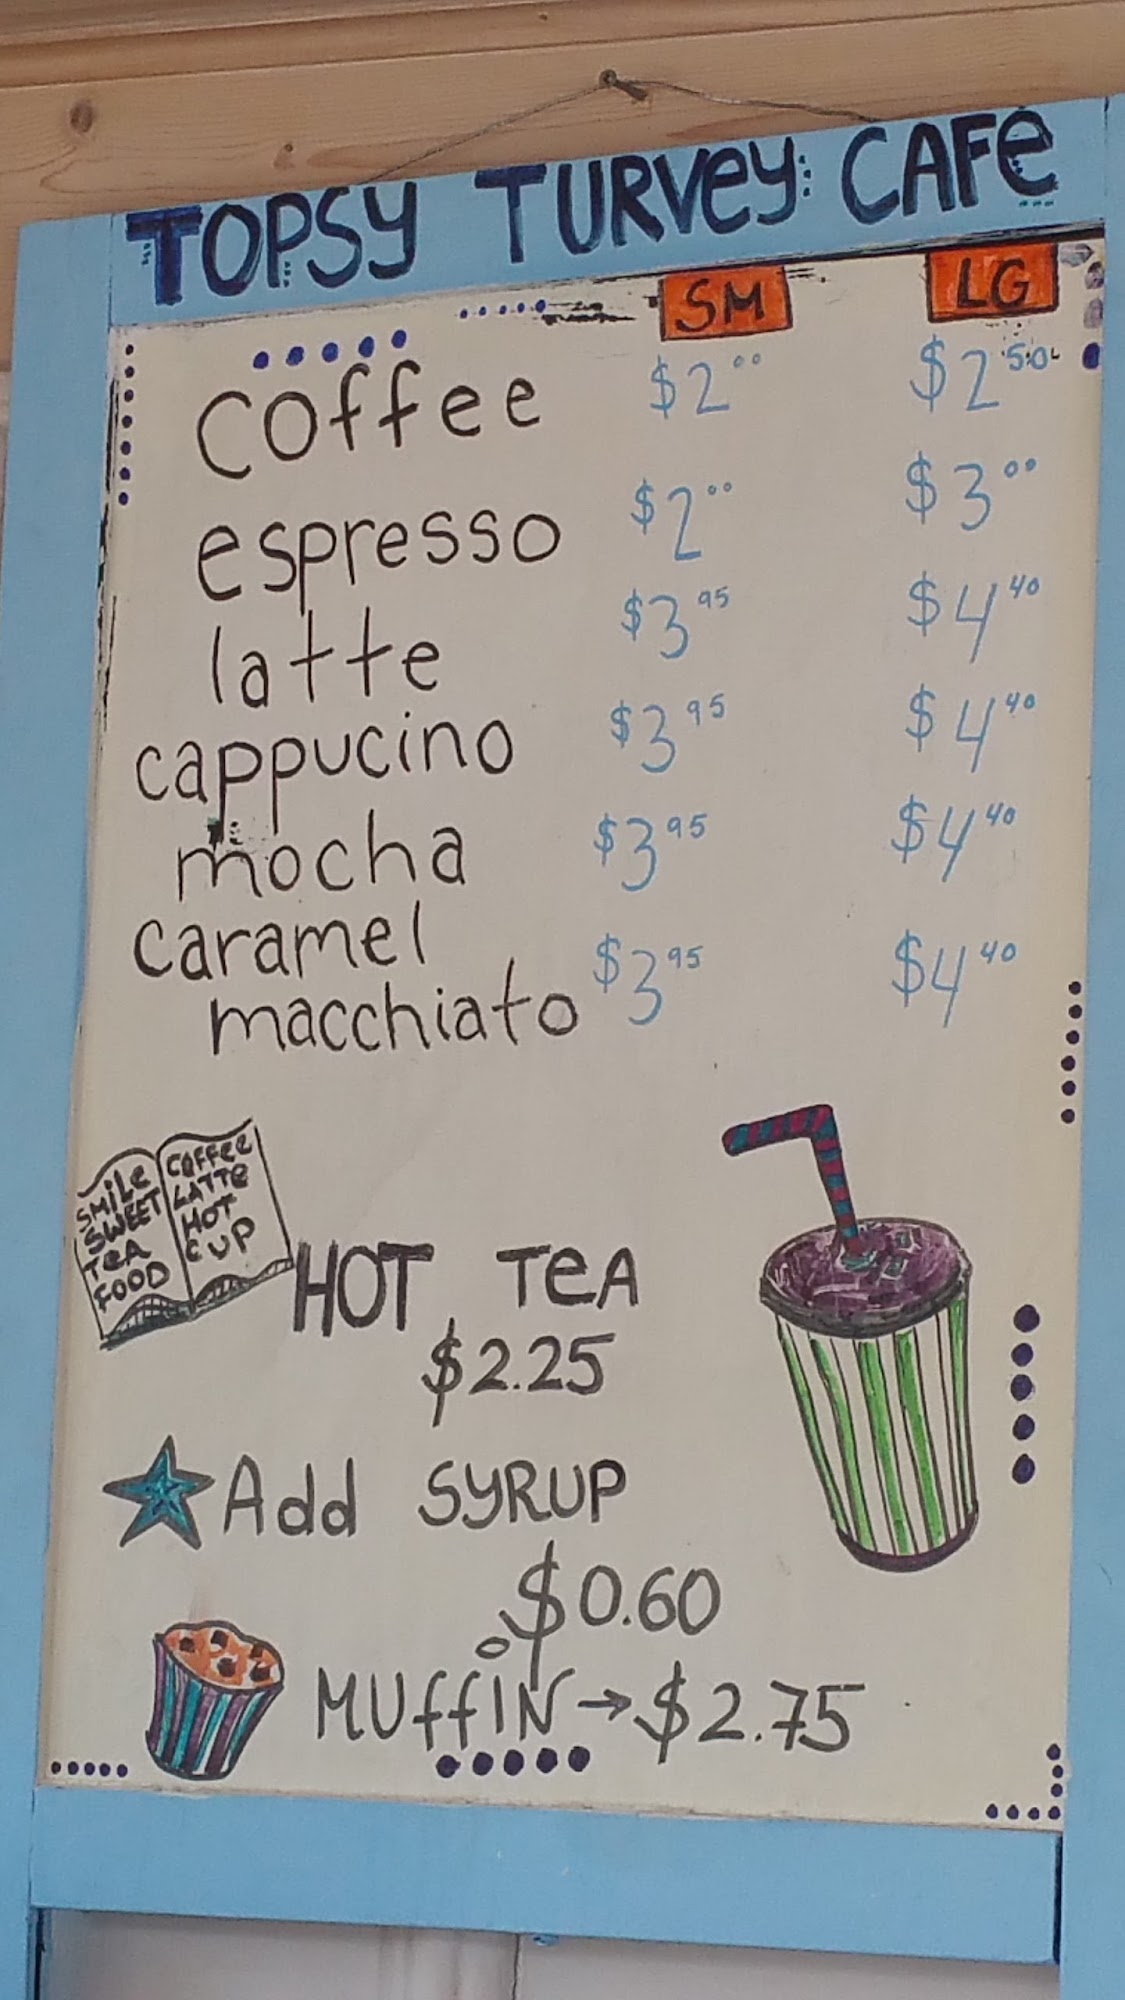 TOPSY TURVEY CAFE
SM LG
coffee $2.00 $2.50
espresso $2.00 $3.00
latte $3.95 $4.40
cappucino $3.95 $4.40
mocha $3.95 $4.40
caramel
macchiato $3.95 $4.40
SMiLe
SWEET
TeA
FOOD
COFFEe
LATTe
HOT
CUP
HOT TeA
$2.25
Add SYRUP
$0.60
MUffiN → $2.75